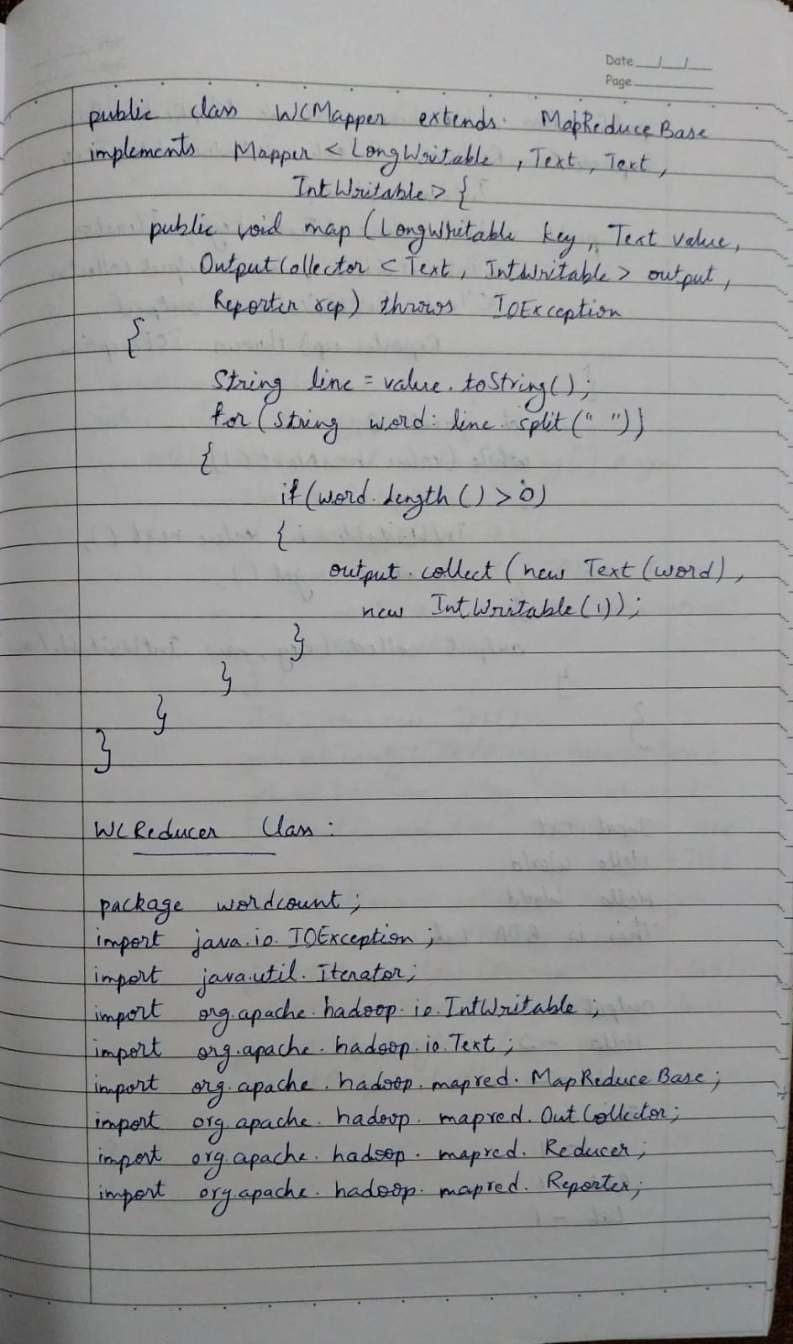 Date __/__/__
Page
public class WCMapper extends MapReduceBase
implements Mapper < LongWritable , Text , Text ,
IntWritable > {
public void map (LongWritable key, Text value,
OutputCollector < Text, IntWritable > output,
Reporter rep) throws IOException
{
String line = value.toString();
for (String word: line.split(" "))
{
if(word.length() > 0)
{
output.collect (new Text (word),
new IntWritable (1));
}
}
}
}
WCReducer Class :
package wordcount ;
import java.io.IOException ;
import java.util.Iterator;
import org.apache.hadoop.io.IntWritable ;
import org.apache.hadoop.io.Text ;
import org.apache.hadoop.mapred.MapReduceBase;
import org.apache.hadoop.mapred.OutCollector;
import org.apache.hadoop.mapred.Reducer;
import org.apache.hadoop.mapred.Reporter;